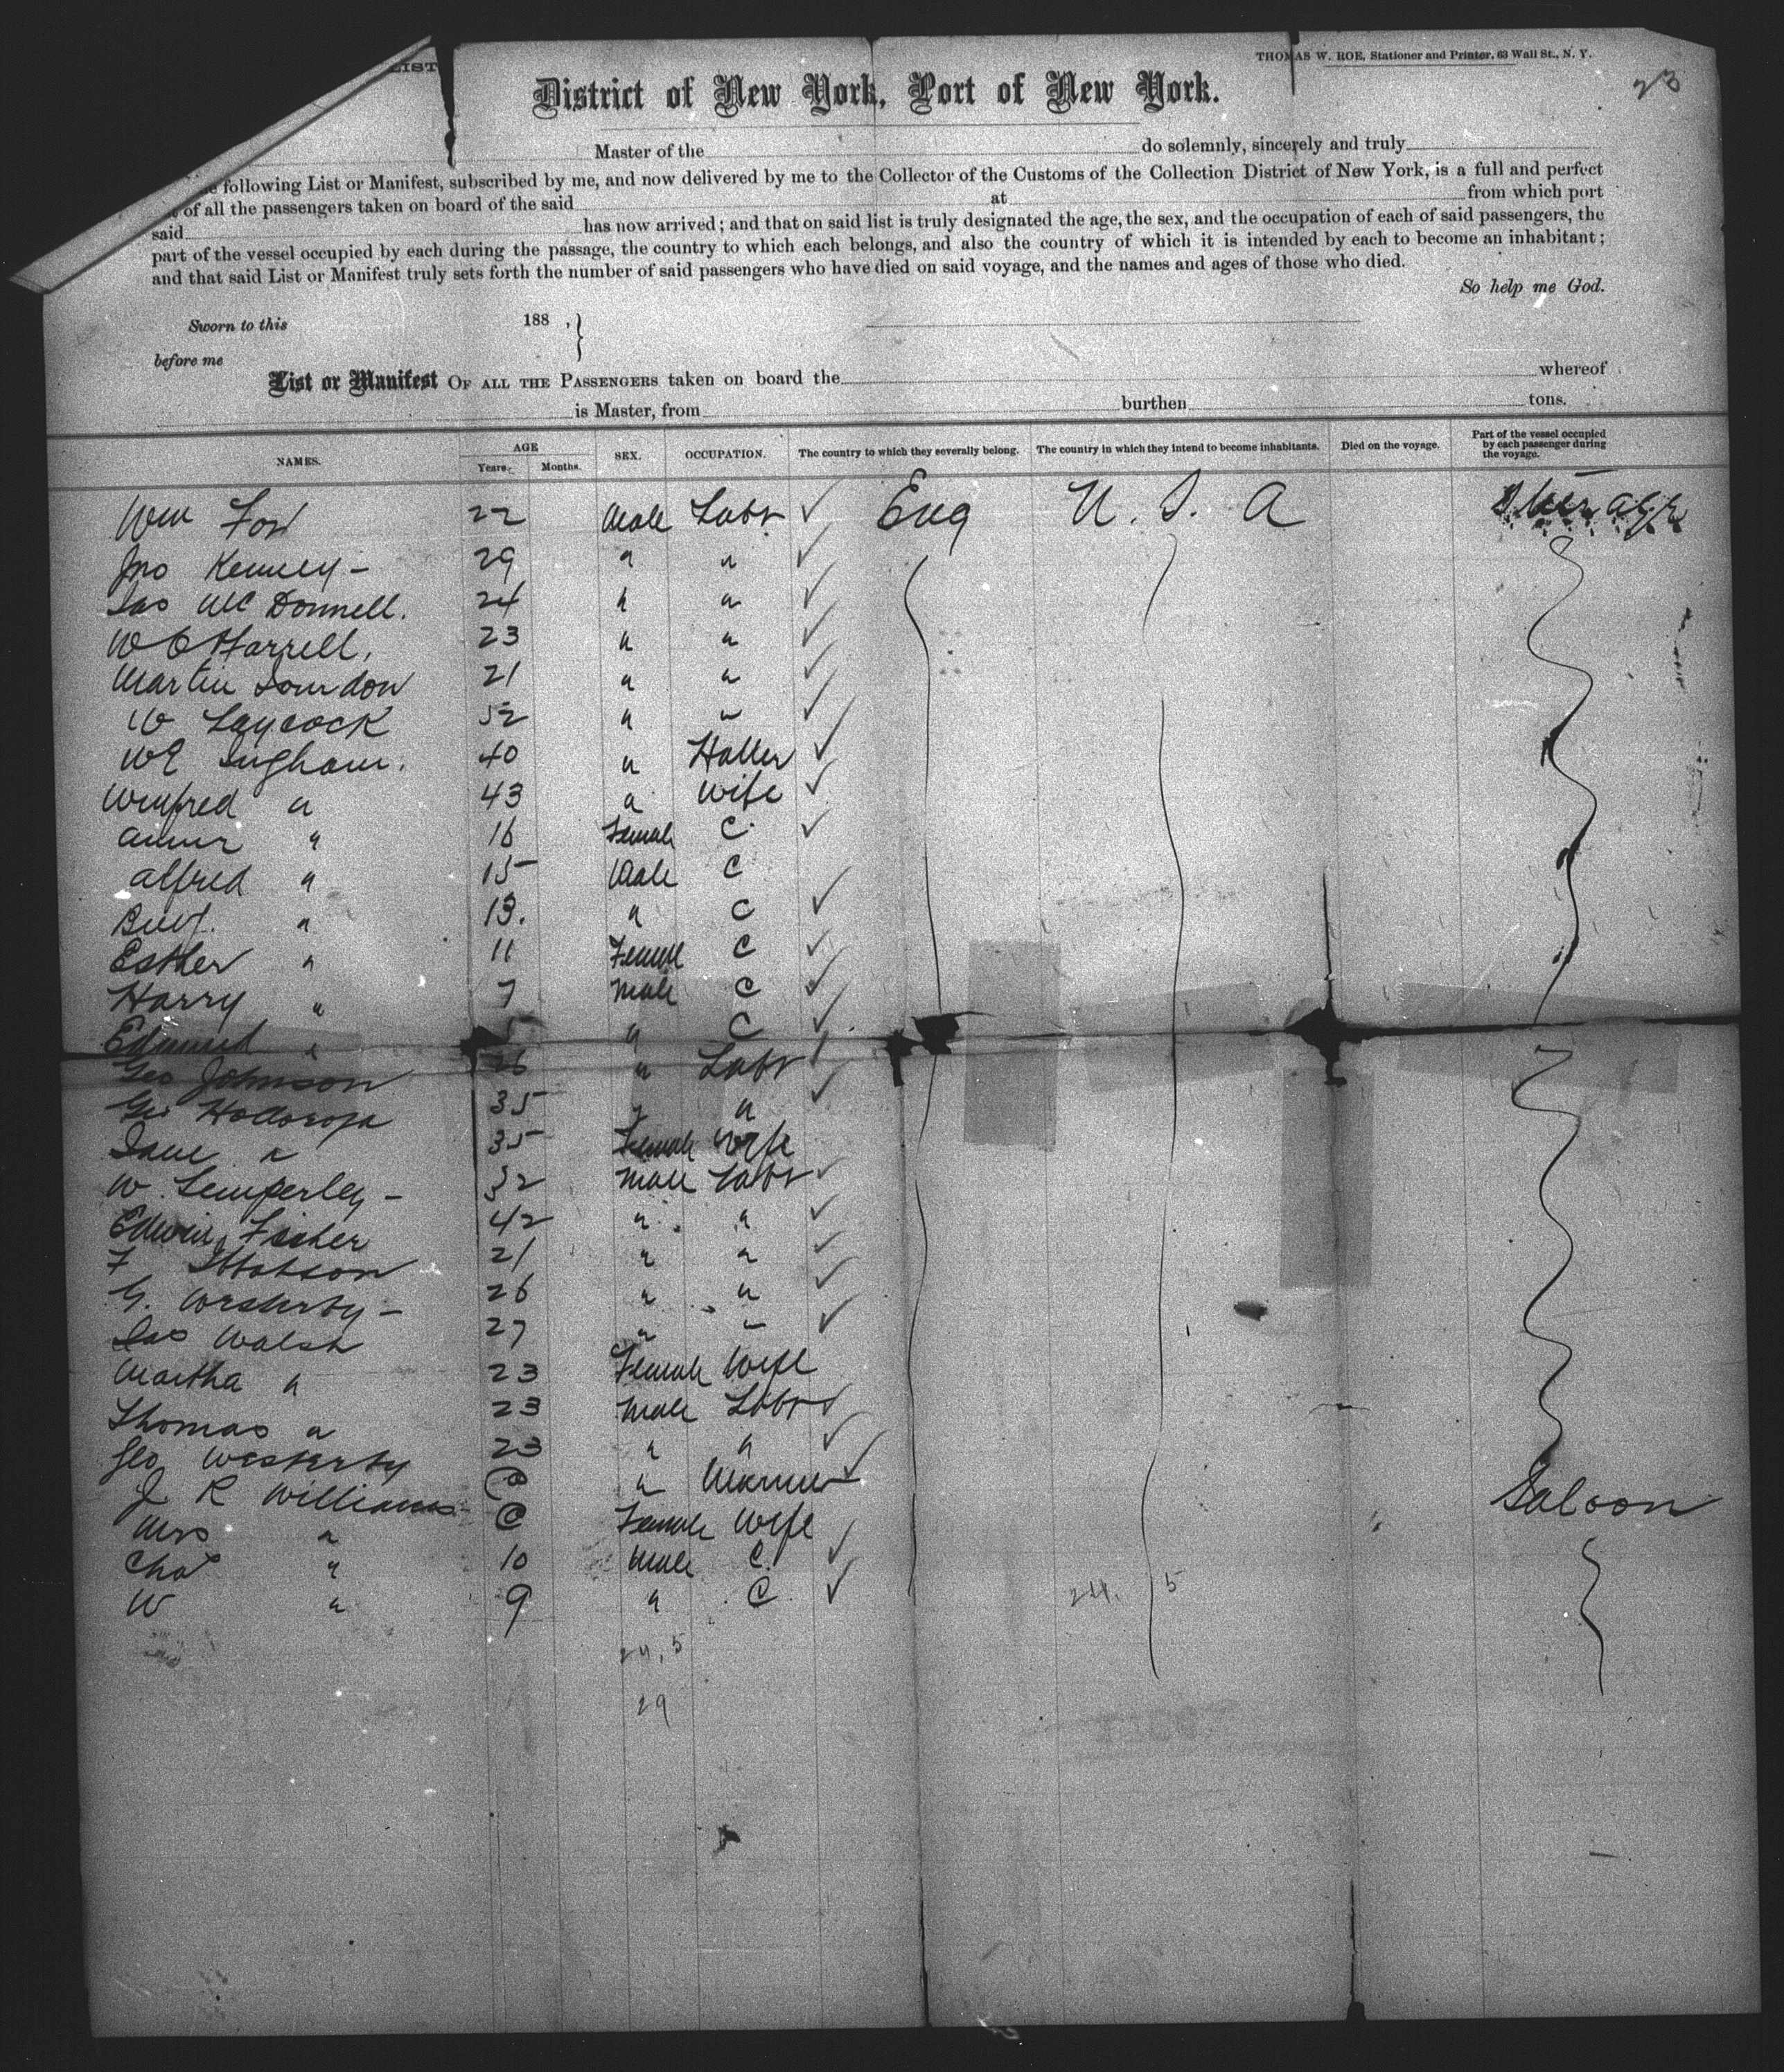 LIST
THOMAS W. ROE, Stationer and Printer, 63 Wall St., N. Y.
23
District of New York, Port of New York.
Master of the do solemnly, sincerely and truly
following List or Manifest, subscribed by me, and now delivered by me to the Collector of the Customs of the Collection District of New York, is a full and perfect
of all the passengers taken on board of the said at from which port
said has now arrived; and that on said list is truly designated the age, the sex, and the occupation of each of said passengers, the
part of the vessel occupied by each during the passage, the country to which each belongs, and also the country of which it is intended by each to become an inhabitant;
and that said List or Manifest truly sets forth the number of said passengers who have died on said voyage, and the names and ages of those who died.
So help me God.
Sworn to this 188 , }
before me
List or Manifest OF ALL THE PASSENGERS taken on board the whereof
is Master, from burthen tons.
NAMES. AGE Years. Months. SEX. OCCUPATION. The country to which they severally belong. The country in which they intend to become inhabitants. Died on the voyage. Part of the vessel occupied by each passenger during the voyage.
Wm 22 Male Labr ✓ Eng U. S. A Steerage
Jno Kenney - 29 " " ✓
Jas McDonnell. 24 " " ✓
W C Harrell, 23 " " ✓
Martin 21 " " ✓
W Laycock 52 " " ✓
WE Ingham. 40 " Hatter ✓
Winfred " 43 " Wife ✓
16 Female C ✓
Alfred " 15 Male C
Benj. " 13. " C ✓
Esther " 11 Female C ✓
Harry " 7 Male C ✓
Edmund " " C ✓
Geo Johnson 26 " Labr ✓
Geo 35 " " ✓
Jane " 35 Female Wife
W. Temperley - 32 Male Labr ✓
Edwin Fisher 42 " " ✓
F 21 " " ✓
G. Westerby - 26 " " ✓
Jas Walsh 27 " " ✓
Martha " 23 Female Wife
Thomas " 23 Male Labr ✓
Geo Westerby 23 " " ✓
J R Williams " ✓ Saloon
Mrs " Female Wife
Chas " 10 Male C. ✓
W " 9 " C. ✓ 24. 5
24, 5
29